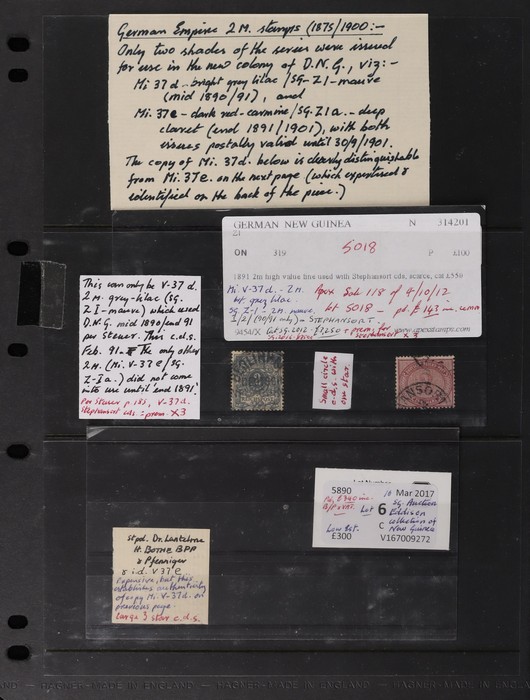 German Empire 2 M. stamps (1875/1900:-
Only two shades of the series were issued
for use in the new colony of D.N.G., viz:-
Mi 37d - bright grey lilac /SG-Z1-mauve
(mid 1890/91), and
Mi. 37e - dark red-carmine/SG.Z1a. - deep
claret (end 1891/1901), with both
issues postally valid until 30/9/1901.
The copy of Mi. 37d. below is clearly distinguishable
from Mi. 37e. on the next page (which expertised &
identified on the back of the piece.)
GERMAN NEW GUINEA N 314201
Z1
ON 319 5018 P £100
1891 2m high value fine used with Stephansort cds, scarce, cat £550
Mi V-37d. - 2M. Apex Sale 118 of 4/10/12
bt grey lilac. Lot 5018 - pd. £143 inc. comm
SG. Z-1 - 2M. mauve.
1/2/(90/91 only) - STEPHANSORT.
This can only be V-37d.
2 M. grey-lilac (SG.
Z1-mauve) which used
D.N.G. mid 1890/end 91
per Steuer. This c.d.s.
Feb. 91. The only other
2M. (Mi. V-37e/SG.
Z-1a.) did not come
into use until end 1891!
Per Steuer p 185, V-37d.
Stephansort cds. = prem x3
Small circle
c.d.s. with
one star.
ANSORT
5890
Lot
6
C
10 Mar 2017
SG. Auction
Eddison
collection of
New Guinea
V167009272
Low Est.
£300
Stpd. Dr. Lantelme
H. Bothe BPP
& Pfenniger
& i.d. V37e
Expensive, but this
establishes authenticity
of copy Mi. V-37d. on
previous page.
Large 3 star c.d.s.
HAGNER-MADE IN ENGLAND — HAGNER-MADE IN ENGLAND